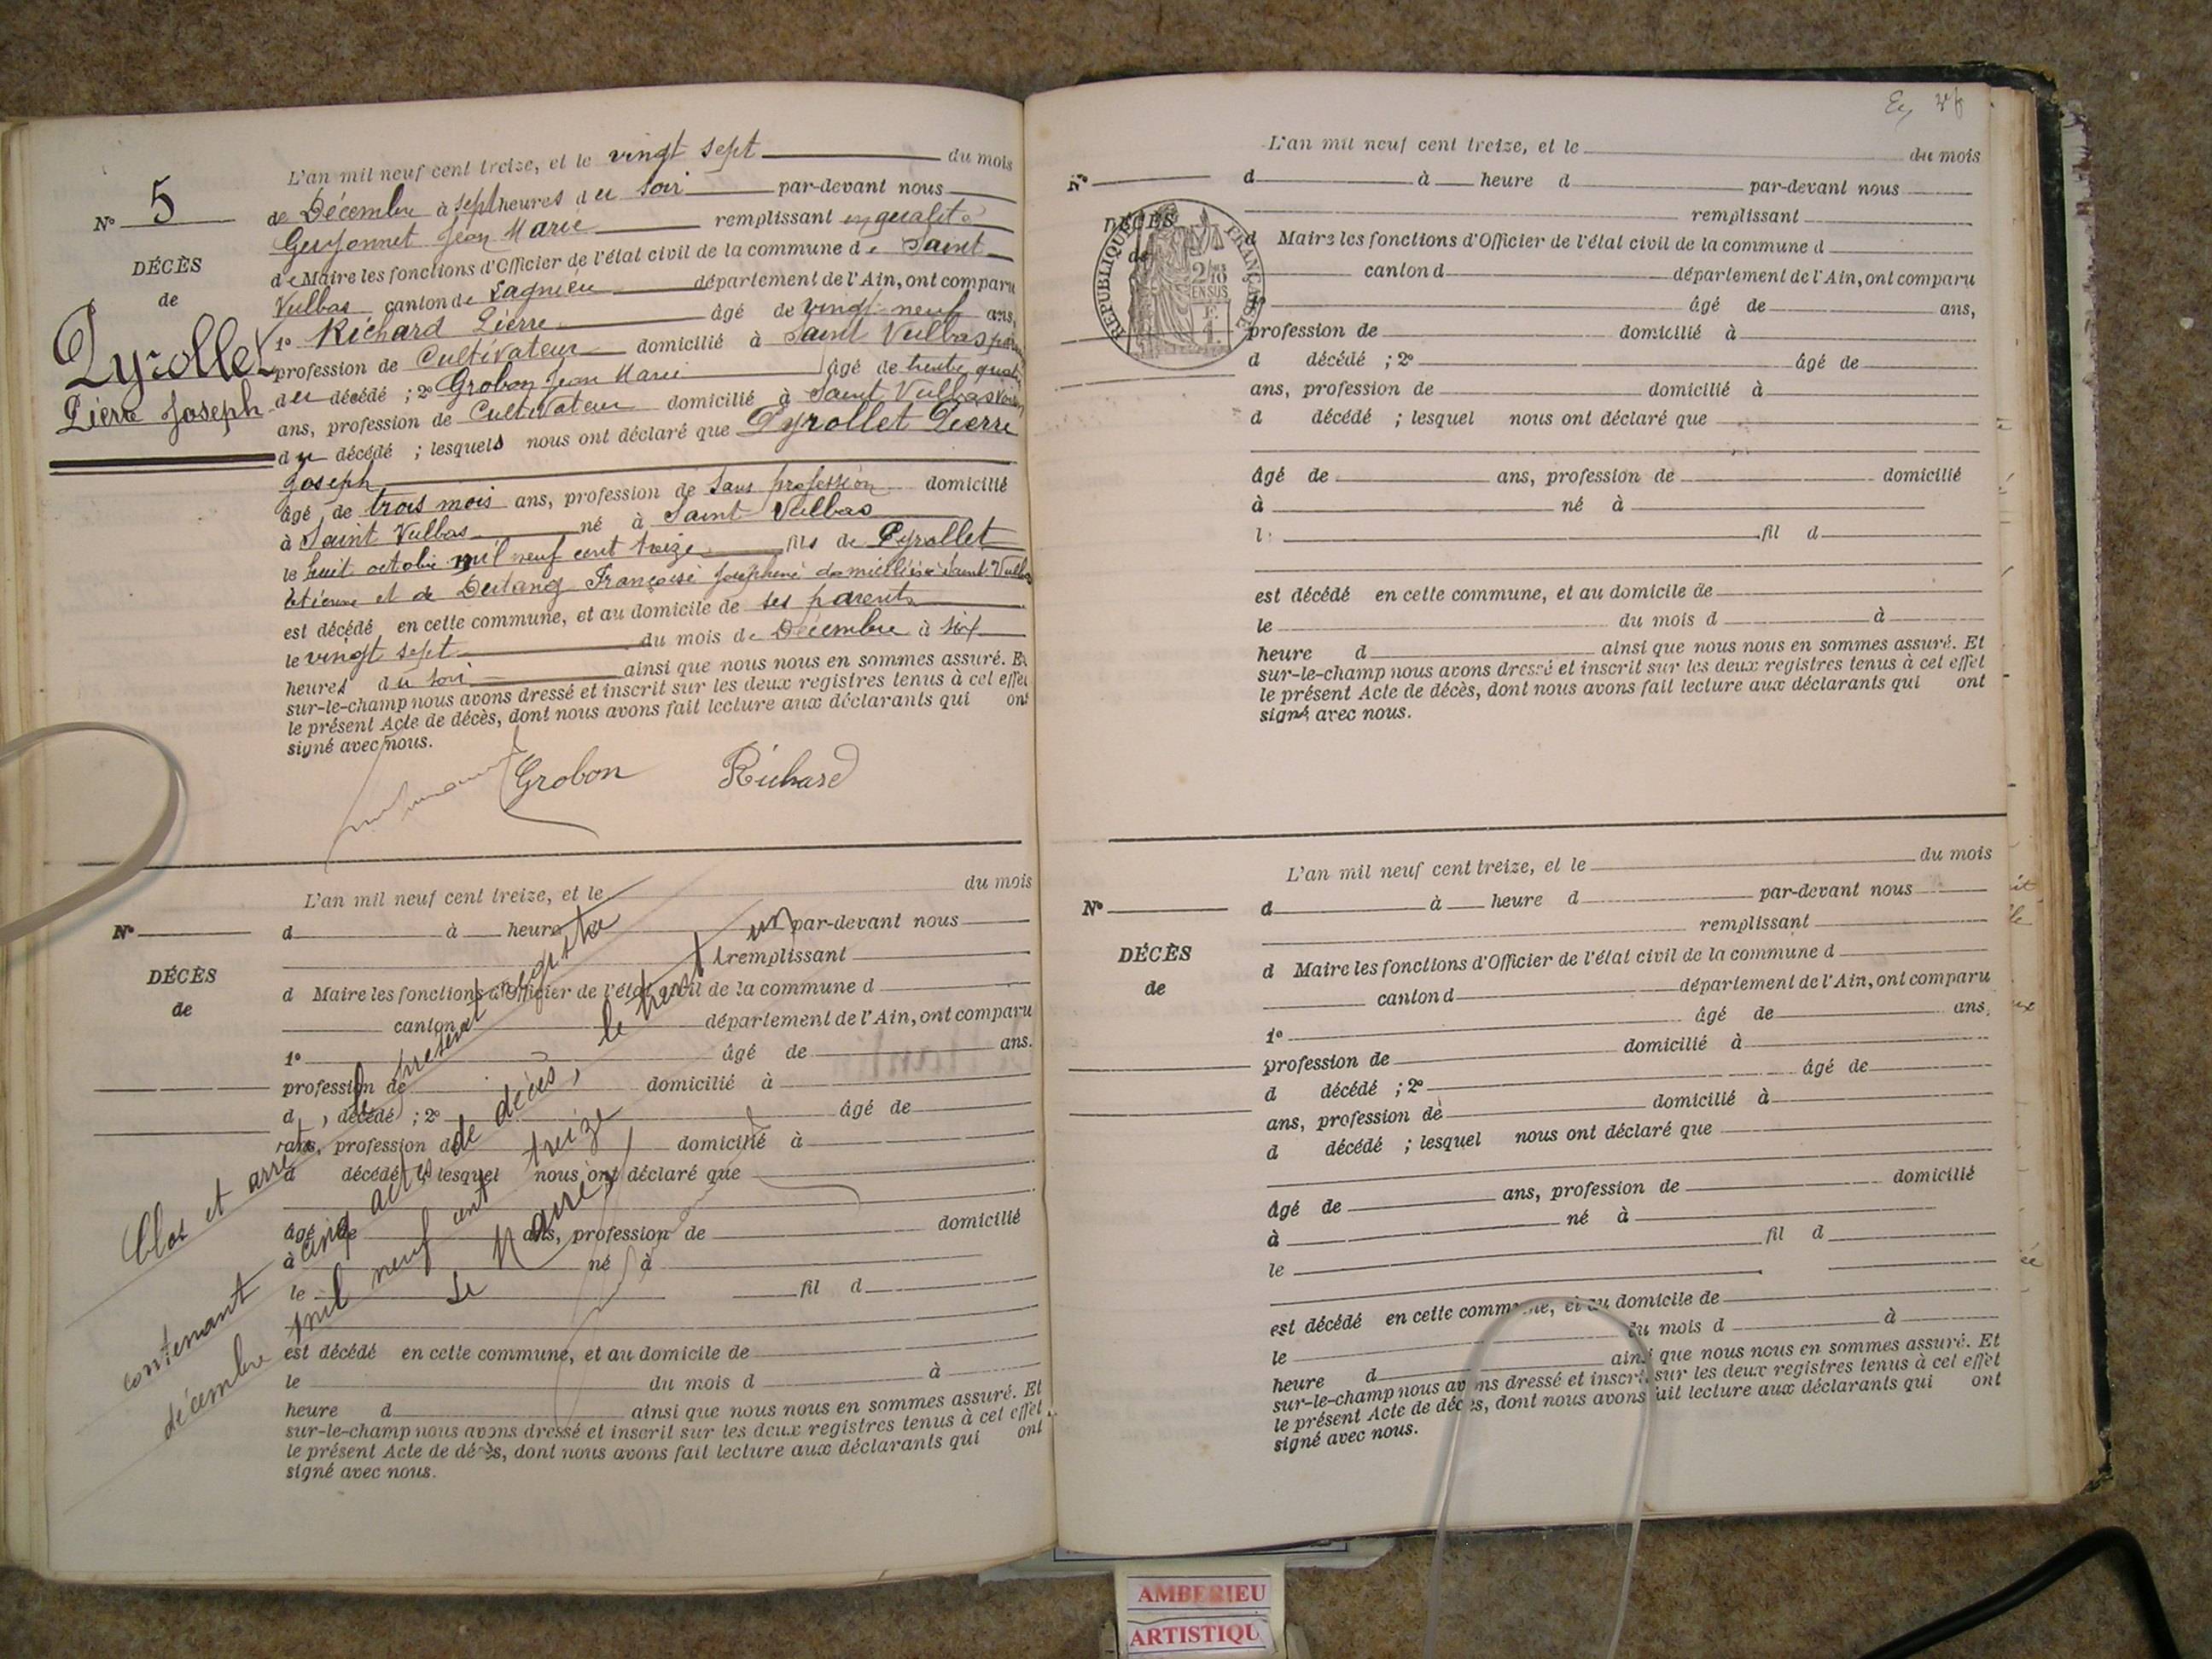 N° 5
DÉCÈS
de
Pyrollet
Pierre Joseph
L'an mil neuf cent treize, et le vingt sept du mois
de Décembre à sept heures du soir par-devant nous
Guyonnet Jean Marie remplissant en qualité
de Maire les fonctions d'Officier de l'état civil de la commune de Saint
Vulbas canton de Lagnieu département de l'Ain, ont comparu
1° Richard Pierre âgé de vingt neuf ans,
profession de Cultivateur domicilié à Saint Vulbas
du décédé ; 2° Grobon Jean Marie âgé de trente quatre
ans, profession de Cultivateur domicilié à Saint Vulbas voisin
du décédé ; lesquels nous ont déclaré que Pyrollet Pierre
Joseph
âgé de trois mois ans, profession de sans profession domicilié
à Saint Vulbas né à Saint Vulbas
le huit octobre mil neuf cent treize fils de Pyrollet
Etienne et de Françoise Joséphine domiciliés à Saint Vulbas
est décédé en cette commune, et au domicile de ses parents
le vingt sept du mois de Décembre à six
heures du soir ainsi que nous nous en sommes assuré. Et
sur-le-champ nous avons dressé et inscrit sur les deux registres tenus à cet effet
le présent Acte de décès, dont nous avons fait lecture aux déclarants qui ont
signé avec nous.
Grobon Richard
L'an mil neuf cent treize, et le du mois
N° d à heure par-devant nous
remplissant
DÉCÈS
de
d Maire les fonctions d'Officier de l'état civil de la commune d
canton d département de l'Ain, ont comparu
1° âgé de ans.
profession de domicilié à
d décédé ; 2° âgé de
ans, profession de domicilié à
d décédé ; lesquel nous ont déclaré que
âgé de ans, profession de domicilié
à né à
le fil d
est décédé en cette commune, et au domicile de
le du mois d à
heure d ainsi que nous nous en sommes assuré. Et
sur-le-champ nous avons dressé et inscrit sur les deux registres tenus à cet effet
le présent Acte de décès, dont nous avons fait lecture aux déclarants qui ont
signé avec nous.
Clos et arrêté, le présent registre
contenant cinq actes de décès, le trente un
décembre mil neuf cent treize
Le Maire,
L'an mil neuf cent treize, et le du mois
N° d à heure d par-devant nous
remplissant
DÉCÈS
de
RÉPUBLIQUE FRANÇAISE
2/10
EN SUS
d Maire les fonctions d'Officier de l'état civil de la commune d
canton d département de l'Ain, ont comparu
1° âgé de ans,
profession de domicilié à
d décédé ; 2° âgé de
ans, profession de domicilié à
d décédé ; lesquel nous ont déclaré que
âgé de ans, profession de domicilié
à né à
l fil d
est décédé en cette commune, et au domicile de
le du mois d à
heure d ainsi que nous nous en sommes assuré. Et
sur-le-champ nous avons dressé et inscrit sur les deux registres tenus à cet effet
le présent Acte de décès, dont nous avons fait lecture aux déclarants qui ont
signé avec nous.
L'an mil neuf cent treize, et le du mois
N° d à heure d par-devant nous
remplissant
DÉCÈS
de
d Maire les fonctions d'Officier de l'état civil de la commune d
canton d département de l'Ain, ont comparu
1° âgé de ans,
profession de domicilié à
d décédé ; 2° âgé de
ans, profession de domicilié à
d décédé ; lesquel nous ont déclaré que
âgé de ans, profession de domicilié
à né à
le fil d
est décédé en cette commune, et au domicile de
le du mois d à
heure d ainsi que nous nous en sommes assuré. Et
sur-le-champ nous avons dressé et inscrit sur les deux registres tenus à cet effet
le présent Acte de décès, dont nous avons fait lecture aux déclarants qui ont
signé avec nous.
AMBERIEU
ARTISTIQU